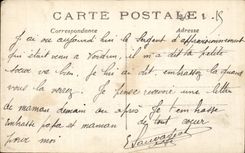 CARTE POSTALE
Correspondance Adresse
J'ai vu aujourd'hui le Sergent d'approvisionnement
qui était venu à Verdun, il m'a dit ta petite
soeur va bien. Je lui ai dit, embrassez la quand
vous la verez. Je pense recevoir une lettre
de maman demain ou après. Je t'embrasse
embrasse papa et maman de tout coeur
pour moi
E Sauvageat